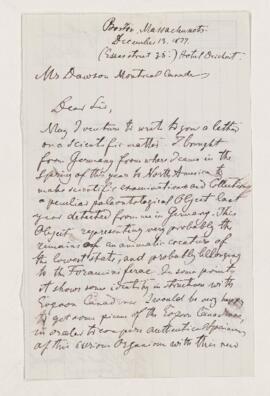 Boston, Massachusetts
December 13. 1877.
(Essex street 35.) Hotel
Mr Dawson Montreal Canada
Dear Sir,
May I venture to write to you a letter
on a scientific matter. I brought
from Germany from where I came in the
spring of this year to North America to
make scientific examinations and Collections
a peculiar palaeontological Object last
year detected from me in Germany. This
Object, representing very probably the
remains of an animatic creature of
the lowest state, and probably belonging
to the Foraminiferae. In some points
it shows some identity in structure with
Eozoon Canadense. I would be very happy
to get some pieces of the Eozoon Canadense,
in order to compare authentical Specimens
of this curious Organism with this new